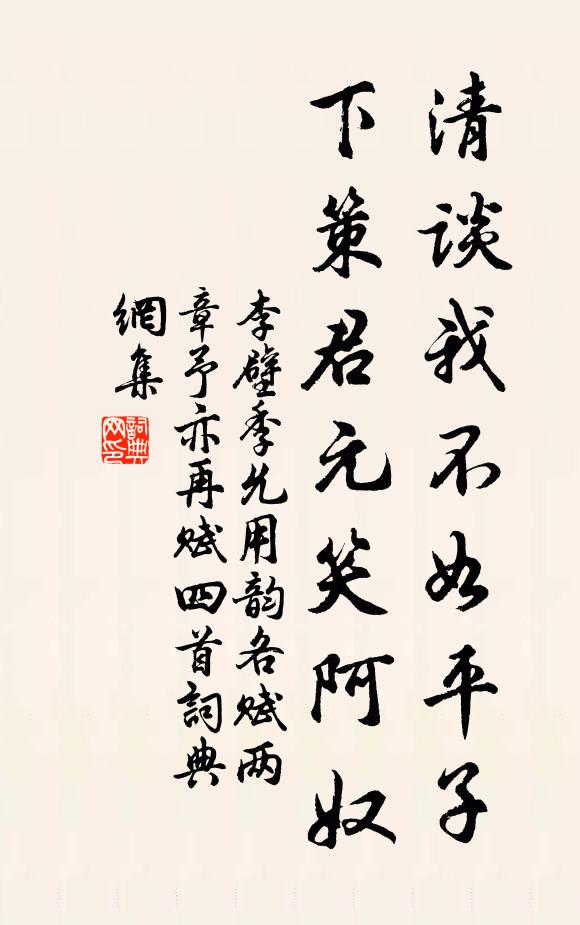 清谈我不如平子
下策君元笑阿奴
李壁季允用韵各赋两
章予亦再赋四首詞典
網集
詞典網印